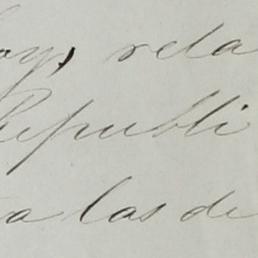 hoy, rela
Republi
a las de